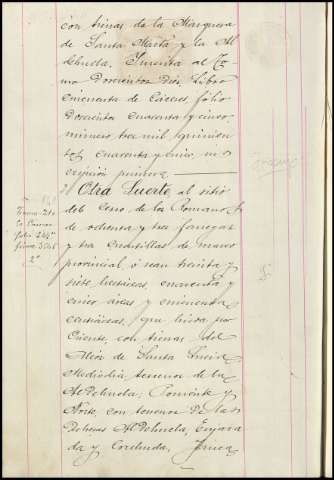 con tierras de la Marquesa
de Santa Marta y la Al
dehuela. Inscrita al to
mo Doscientos Diez, libro
cincuenta de Cáceres, folio
Doscientos cuarenta y cinco
número tres mil quinien
tos cuarenta y cinco, ins
cripción primera
Otra Suerte al sitio
del Cerro de los Romanos
de ochenta y tres fanegas
y tres cuartillas de marco
provincial, ó sean treinta y
siete hectáreas, cuarenta y
cinco áreas y cincuenta
centiáreas, que linda por
Oriente, con tierras del
de Santa Lucia
Mediodia terrenos de la
Aldehuela, Poniente y
Norte, con terrenos de las
Dehesas Aldehuela,
da y Corchuela,
Tomo 210
folio
finca
2ª